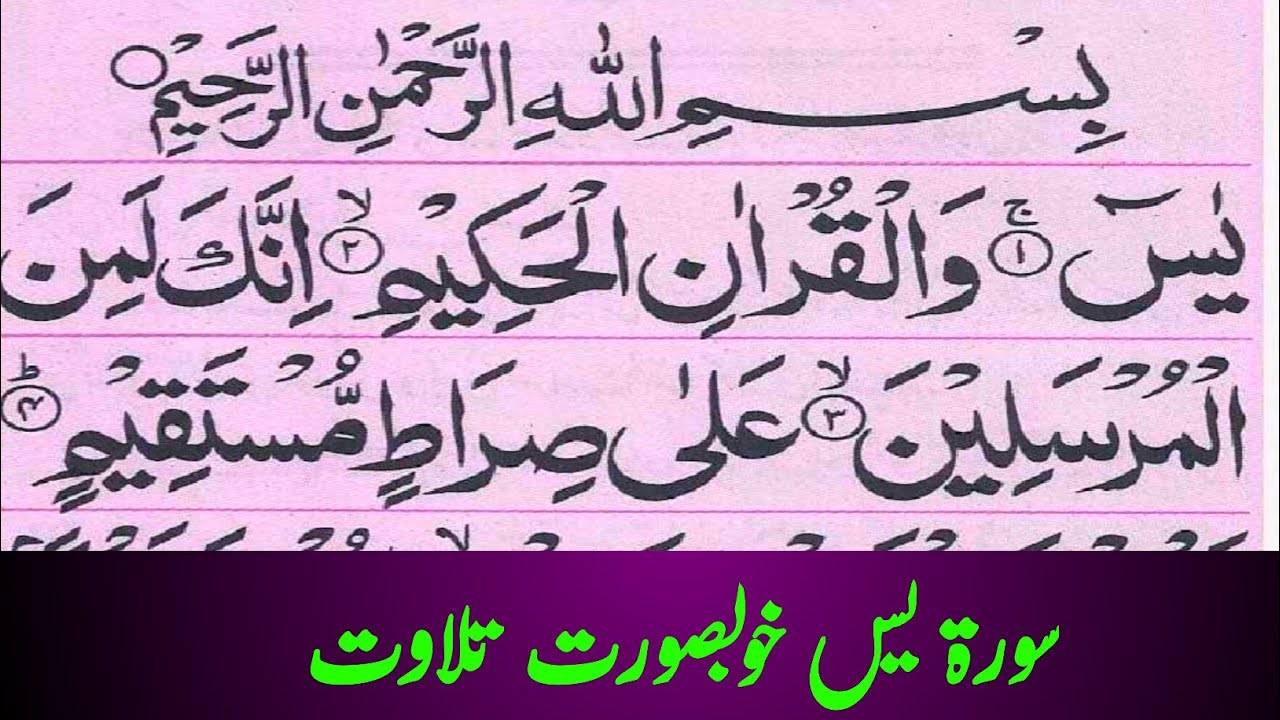 بِسْمِ اللّٰهِ الرَّحْمٰنِ الرَّحِيْمِ ○
يٰسٓ ۚ﴿۱﴾ وَالْقُرْاٰنِ الْحَكِيْمِ ۙ﴿۲﴾ اِنَّكَ لَمِنَ
الْمُرْسَلِيْنَ ۙ﴿۳﴾ عَلٰى صِرَاطٍ مُّسْتَقِيْمٍ ؕ﴿۴﴾
سورۃ یٰس خوبصورت تلاوت